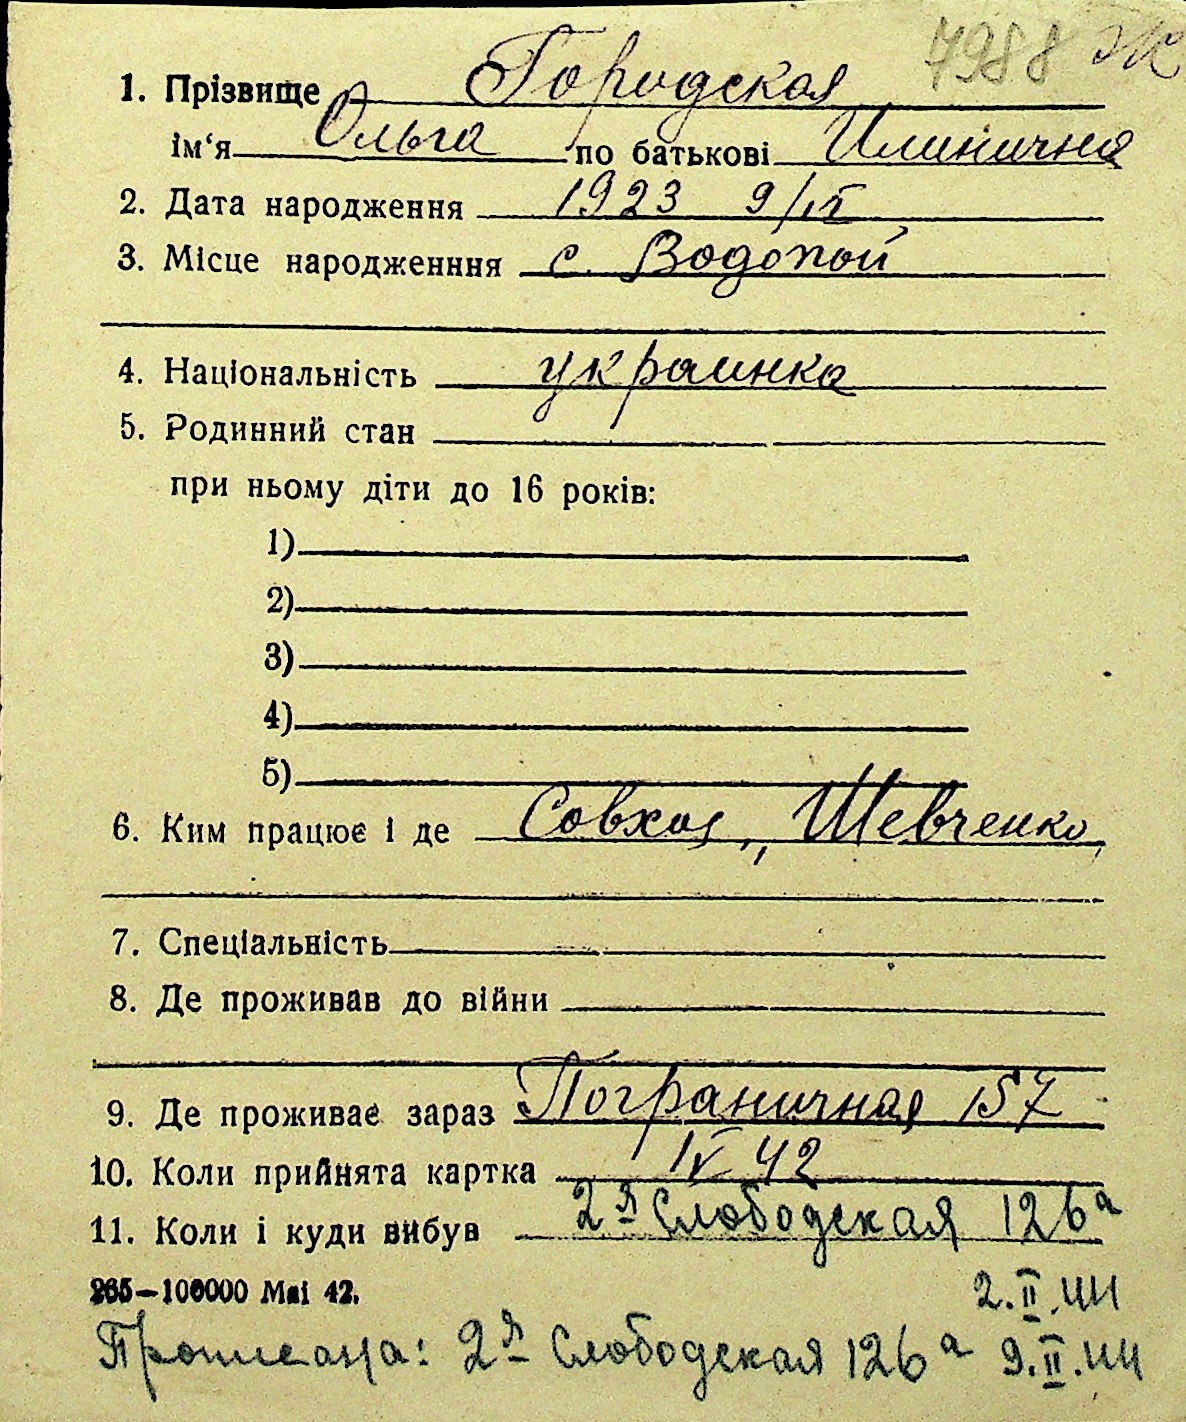 7988 Ж
1. Прізвище Городская
ім‘я Ольга по батькові Илинична
2. Дата народження 1923 9/IX
3. Місце народженння с. Водопой
4. Національність украинка
5. Родинний стан
при ньому діти до 16 років:
1)
2)
3)
4)
5)
6. Ким працює і де Совхоз „Шевченко„
7. Спеціальність
8. Де проживав до війни
9. Де проживає зараз Пограничная 157
10. Коли прийнята картка IV 42
11. Коли і куди вибув 2я Слободская 126а
265—100000 Маі 42. 2.II.44
Прописана: 2я Слободская 126а 9.II.44